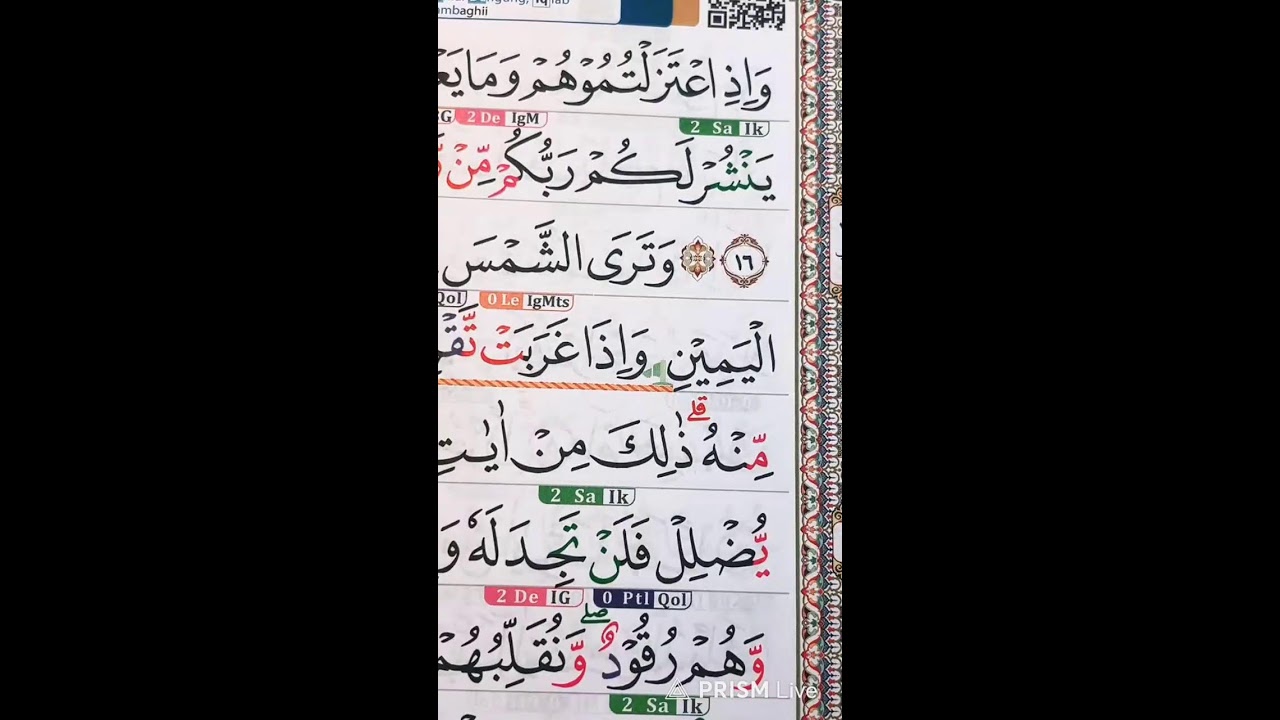 mbaghii
وَاِذِ اعْتَزَلْتُمُوْهُمْ وَمَا يَعْ
2 De IgM 2 Sa Ik
يَنْشُرْ لَكُمْ رَبُّكُمْ مِّنْ
١٦ وَتَرَى الشَّمْسَ
Qol 0 Le IgMts
الْيَمِيْنِ وَاِذَا غَرَبَتْ تَّقْ
مِّنْهُ ۗ ذٰلِكَ مِنْ اٰيٰتِ
2 Sa Ik
يُّضْلِلْ فَلَنْ تَجِدَ لَهٗ وَ
2 De IG 0 Ptl Qol
وَّهُمْ رُقُوْدٌ ۖ وَّنُقَلِّبُهُمْ
PRISM Live
2 Sa Ik